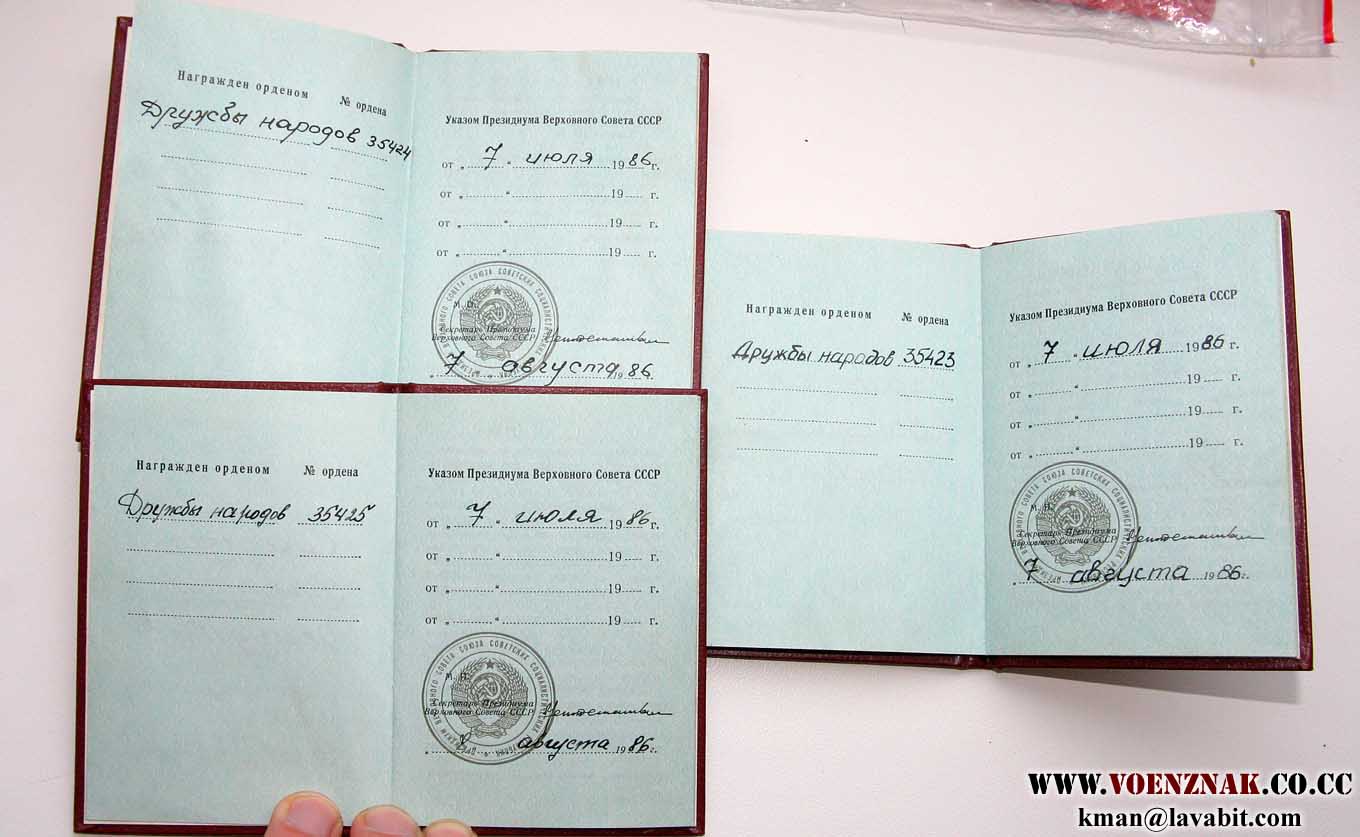 Награжден орденом № ордена
Дружбы народов 35424
Указом Президиума Верховного Совета СССР
от „ 7 “ июля 1986 г.
от „ “ 19 г.
от „ “ 19 г.
от „ “ 19 г.
М. П.
Секретарь Президиума
Верховного Совета СССР
„ 7 “ августа 1986 г.
Награжден орденом № ордена
Дружбы народов 35425
Указом Президиума Верховного Совета СССР
от „ 7 “ июля 1986 г.
от „ “ 19 г.
от „ “ 19 г.
от „ “ 19 г.
М. П.
Секретарь Президиума
Верховного Совета СССР
августа 1986 г.
Награжден орденом № ордена
Дружбы народов 35423
Указом Президиума Верховного Совета СССР
от „ 7 “ июля 1986 г.
от „ “ 19 г.
от „ “ 19 г.
от „ “ 19 г.
М. П.
Секретарь Президиума
Верховного Совета СССР
„ 7 “ августа 1986 г.
WWW.VOENZNAK.CO.CC
kman@lavabit.com